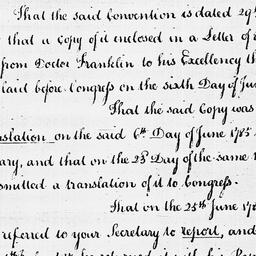 That the said Convention is dated 29th
that a Copy of it enclosed in a Letter of
from Doctor Franklin to his Excellency th
laid before Congress on the sixth Day of Ju
That the said Copy was
nslation on the said 6th Day of June 1785
ary, and that on the 28 Day of the same
smitted a translation of it to Congress.
That on the 25th June 17
referred to your Secretary to report, and